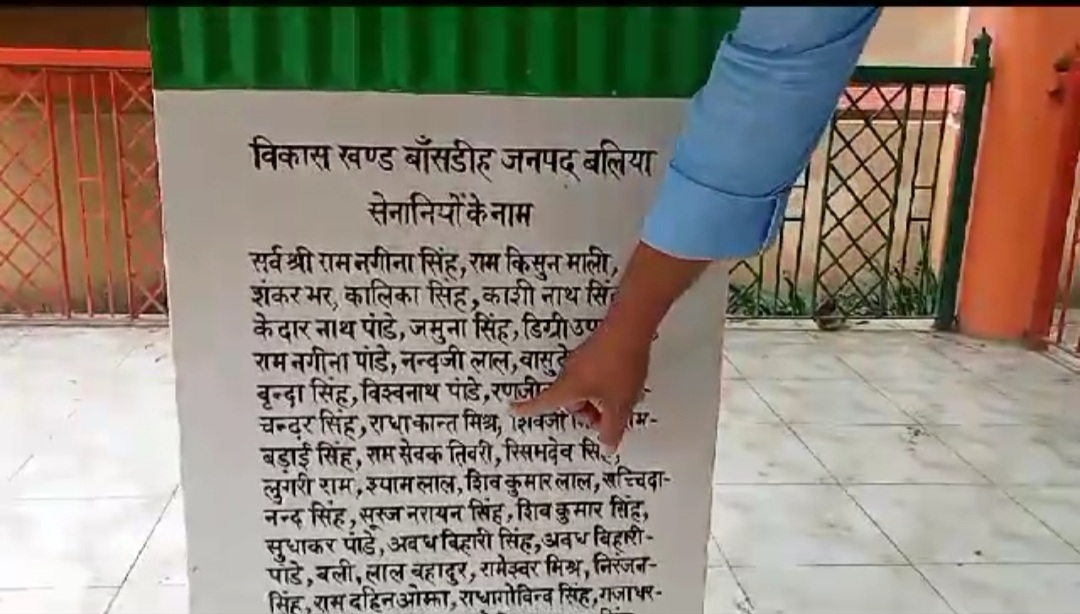 विकास खण्ड बाँसडीह जनपद बलिया
सेनानियों के नाम
सर्व श्री राम नगीना सिंह, राम किसुन माली,
शंकर भर, कालिका सिंह, काशी नाथ
केदार नाथ पांडे, जमुना सिंह, डिग्री
राम नगीना पांडे, नन्दजी लाल,
बृन्दा सिंह, विश्वनाथ पांडे,
चन्दर सिंह, राधाकान्त मिश्र, शिवजी
बड़ाई सिंह, राम सेवक तिवरी, रिसमदेव
लुगरी राम, श्यामलाल, शिव कुमार लाल, सच्चिदा-
नन्द सिंह, सूरज नरायन सिंह, शिव कुमार सिंह,
सुधाकर पांडे, अवध बिहारी सिंह, अवध बिहारी-
पांडे, बली, लाल बहादुर, रामेश्वर मिश्र, निरंजन-
सिंह, राम दहिन ओझा, राधागोविन्द सिंह, गजाधर-